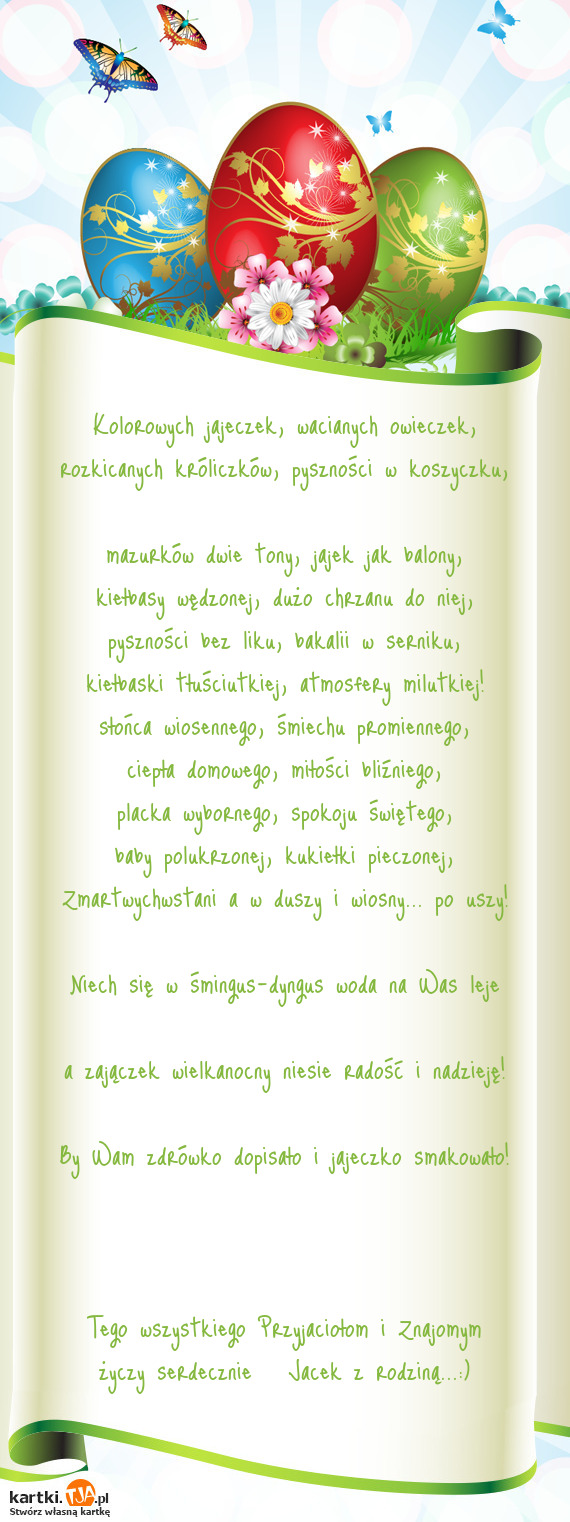 Kolorowych jajeczek, wacianych owieczek,
rozkicanych króliczków, pyszności w koszyczku,
mazurków dwie tony, jajek jak balony,
kiełbasy wędzonej, dużo chrzanu do niej,
pyszności bez liku, bakalii w serniku,
kiełbaski tłuściutkiej, atmosfery milutkiej!
słońca wiosennego, śmiechu promiennego,
ciepła domowego, miłości bliźniego,
placka wybornego, spokoju świętego,
baby polukrzonej, kukiełki pieczonej,
Zmartwychwstani a w duszy i wiosny... po uszy!
Niech się w śmingus-dyngus woda na Was leje
a zajączek wielkanocny niesie radość i nadzieję!
By Wam zdrówko dopisało i jajeczko smakowało!
Tego wszystkiego Przyjaciołom i Znajomym
życzy serdecznie Jacek z rodziną...:)
kartki.TJA.pl
Stwórz własną kartkę